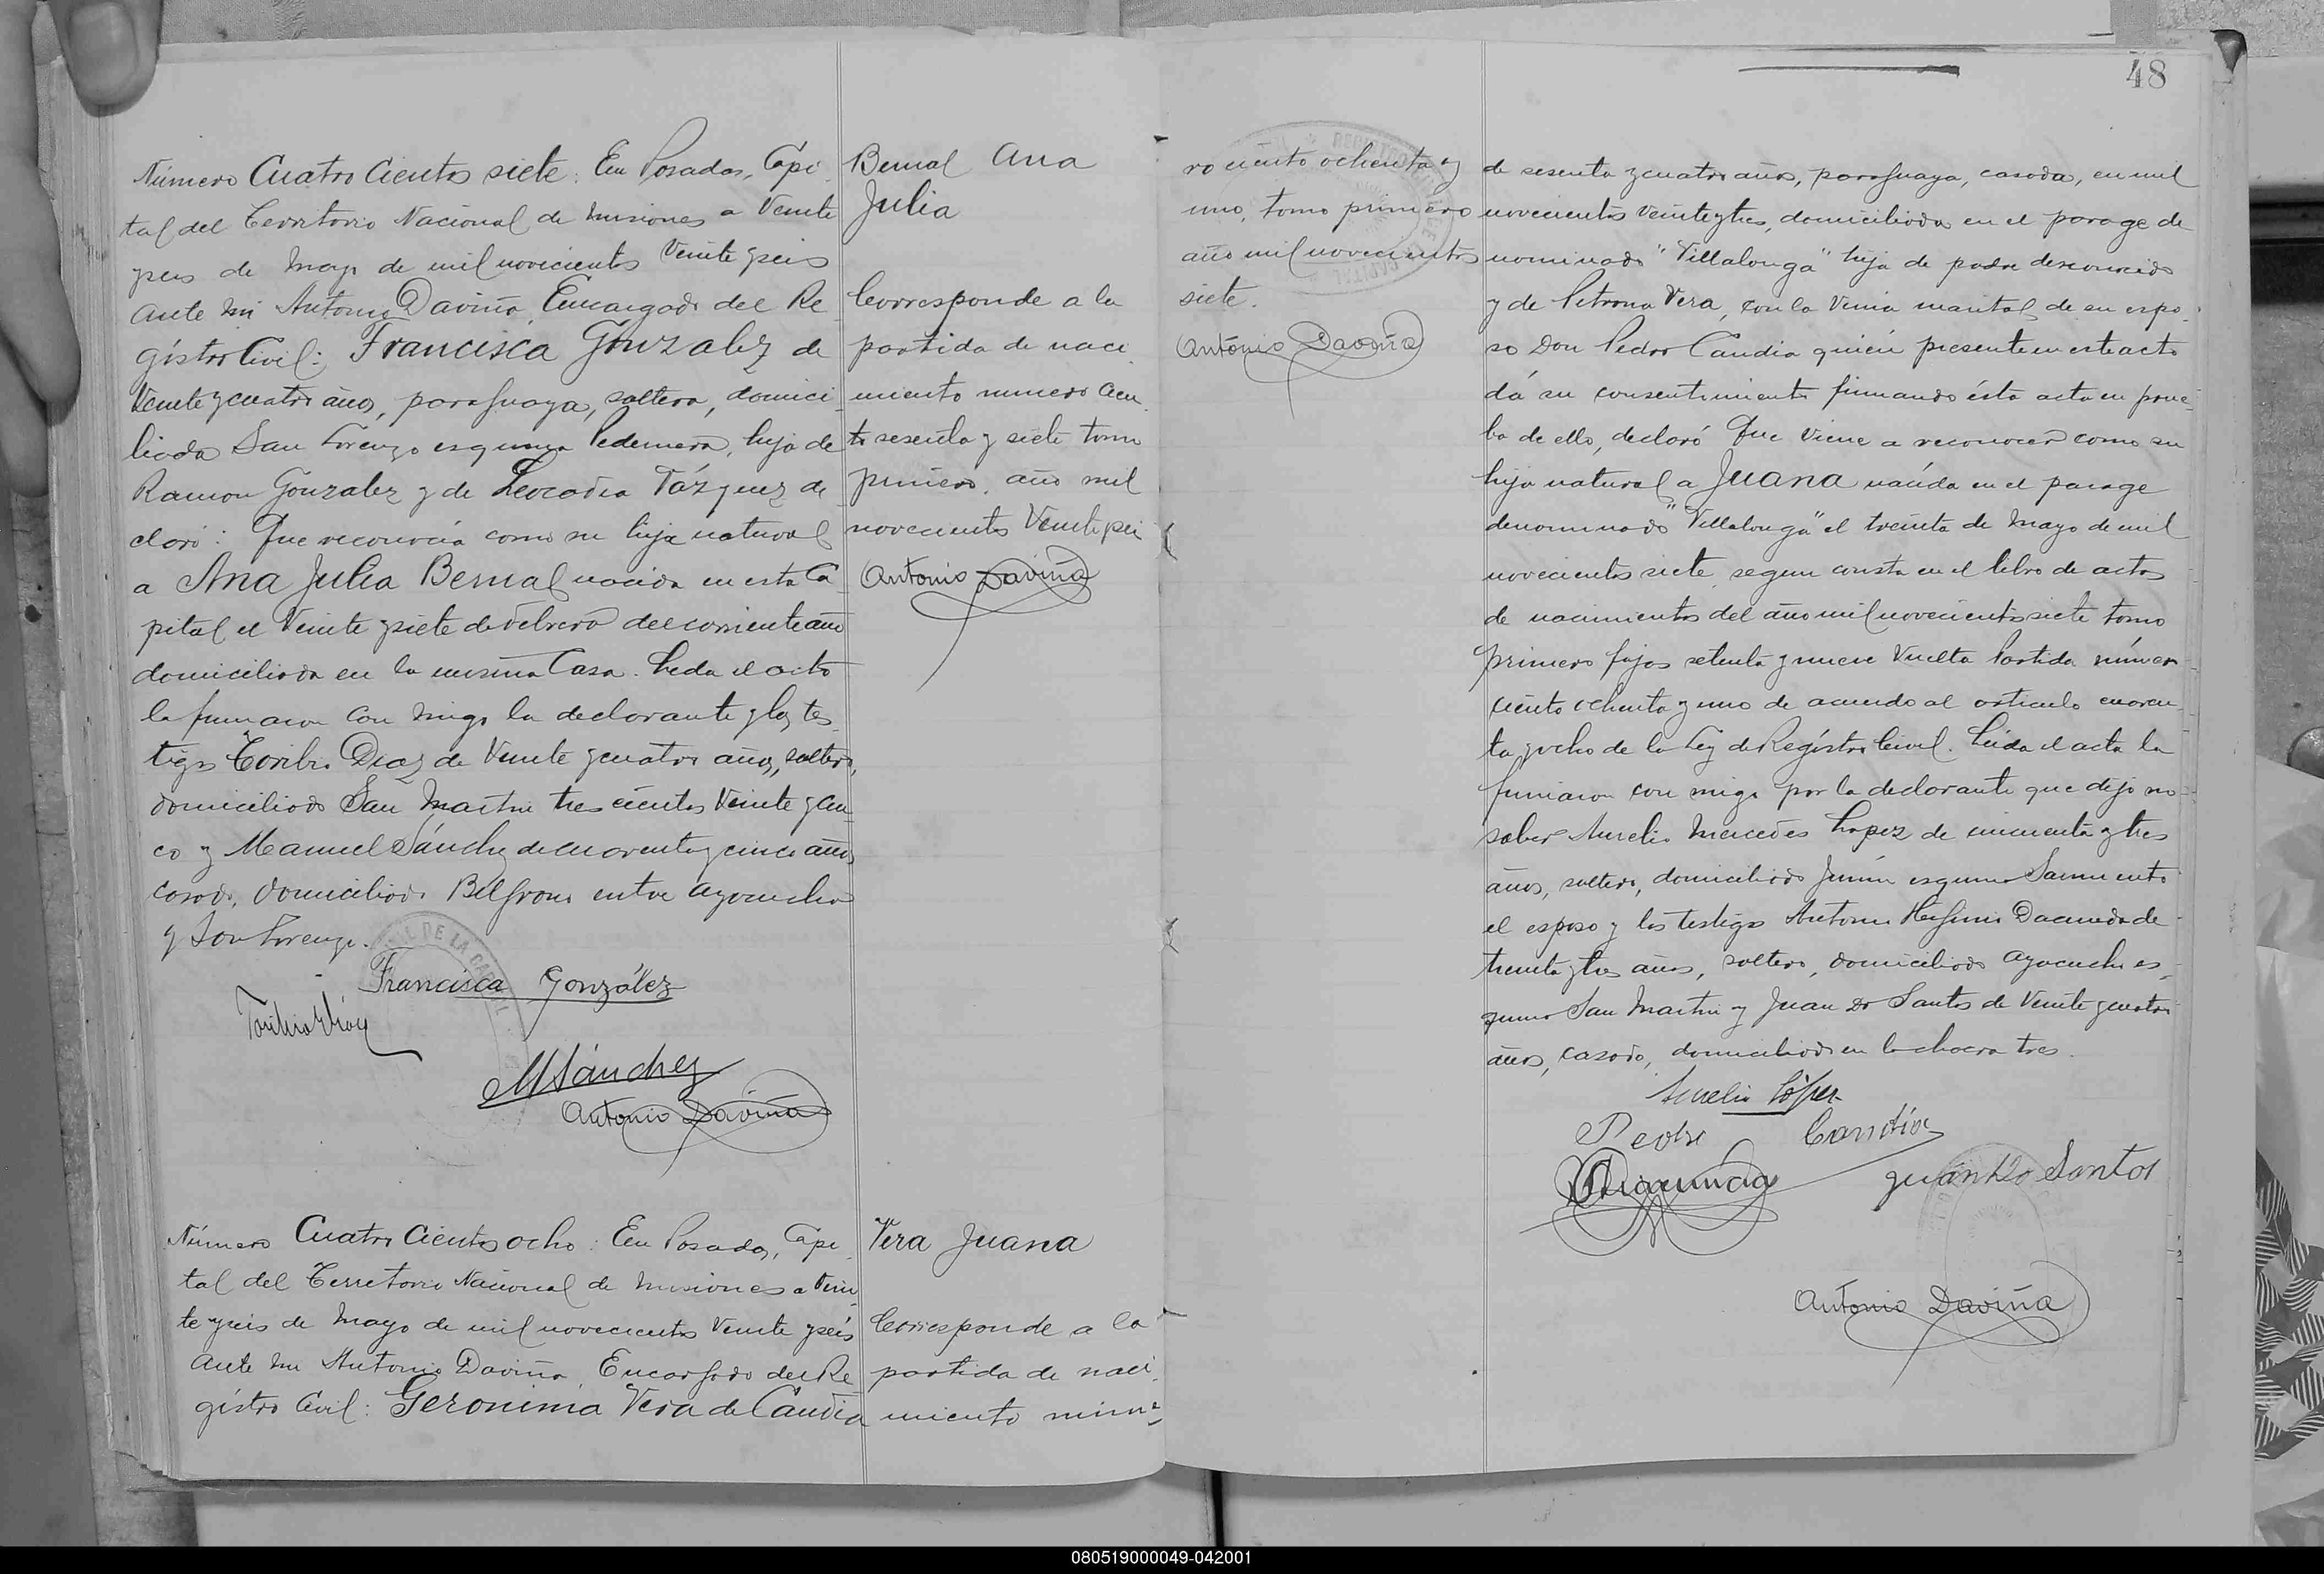 Número Cuatro Cientos siete: En Posadas, Capi-
tal del Territorio Nacional de Misiones a Veinte
y seis de Mayo de mil novecientos Veinte y seis
ante mi Antonio Daviña, Encargado del Re-
gistro Civil: Francisca Gonzalez de
Veinte y cuatro años, paraguaya, soltera, domici-
liada San Lorenzo esquina Pedernera, hija de
Ramon Gonzalez y de Leocadia Vázquez de
claró: Que reconocía como su hija natural
a Ana Julia Bernal nacida en esta Ca-
pital el Veinte y siete de Febrero del corriente año
domiciliada en la misma Casa. Leida el acta
la firmaron con migo la declarante y los tes-
tigos Toribio Diaz de Veinte y cuatro años, soltero,
domiciliado San Martin tres cientos Veinte y cin-
co y Manuel Sánchez de cuarenta y cinco años
casado, domiciliado Belgrano entre Ayacucho
y San Lorenzo.
Francisca González
Toribio Diaz
MSánchez
Antonio Daviña
Bernal Ana
Julia
Corresponde a la
partida de naci-
miento numero cien-
to sesenta y siete tomo
primero, año mil
novecientos Veinte y seis
Antonio Daviña
Número Cuatro Cientos ocho: En Posadas, Capi-
tal del Territorio Nacional de Misiones a Vein-
te y seis de Mayo de mil novecientos Veinte y seis
ante mi Antonio Daviña, Encargado del Re-
gistro Civil: Geronima Vera de Candia
Vera Juana
Corresponde a la
partida de naci-
miento núme-
48
ro ciento ochenta y
uno, tomo primero
año mil novecientos
siete.
Antonio Daviña
de sesenta y cuatro años, paraguaya, casada, en mil
novecientos veinte y tres, domiciliada en el parage de
nominado "Villalonga" hija de padre desconocido
y de Petrona Vera, con la venia marital de su espo-
so Don Pedro Candia quién presente en este acto
dá su consentimiento firmando ésta acta en prue-
ba de ello, declaró Que viene a reconocer como su
hija natural a Juana nacida en el parage
denominado "Villalonga" el treinta de Mayo de mil
novecientos siete segun consta en el libro de actas
de nacimientos del año mil novecientos siete tomo
primero fojas setenta y nueve Vuelta Partida número
ciento ochenta y uno de acuerdo al articulo cuaren-
ta y ocho de la Ley de Registro Civil. Leida el acta la
firmaron con migo por la declarante que dijo no
saber Aurelio Mercedes Lopez de cincuenta y tres
años, soltero, domiciliado Junin esquina Sarmiento
el esposo y los testigos Antonio Higinio Dacunda de
treinta y tres años, soltero, domiciliado Ayacucho es-
quina San Martin y Juan Do Santos de Veinte y cuatro
años, casado, domiciliado en la chacra tres.
Aurelio López
Pedro Candia
Juan Do Santos
Antonio Daviña
080519000049-042001